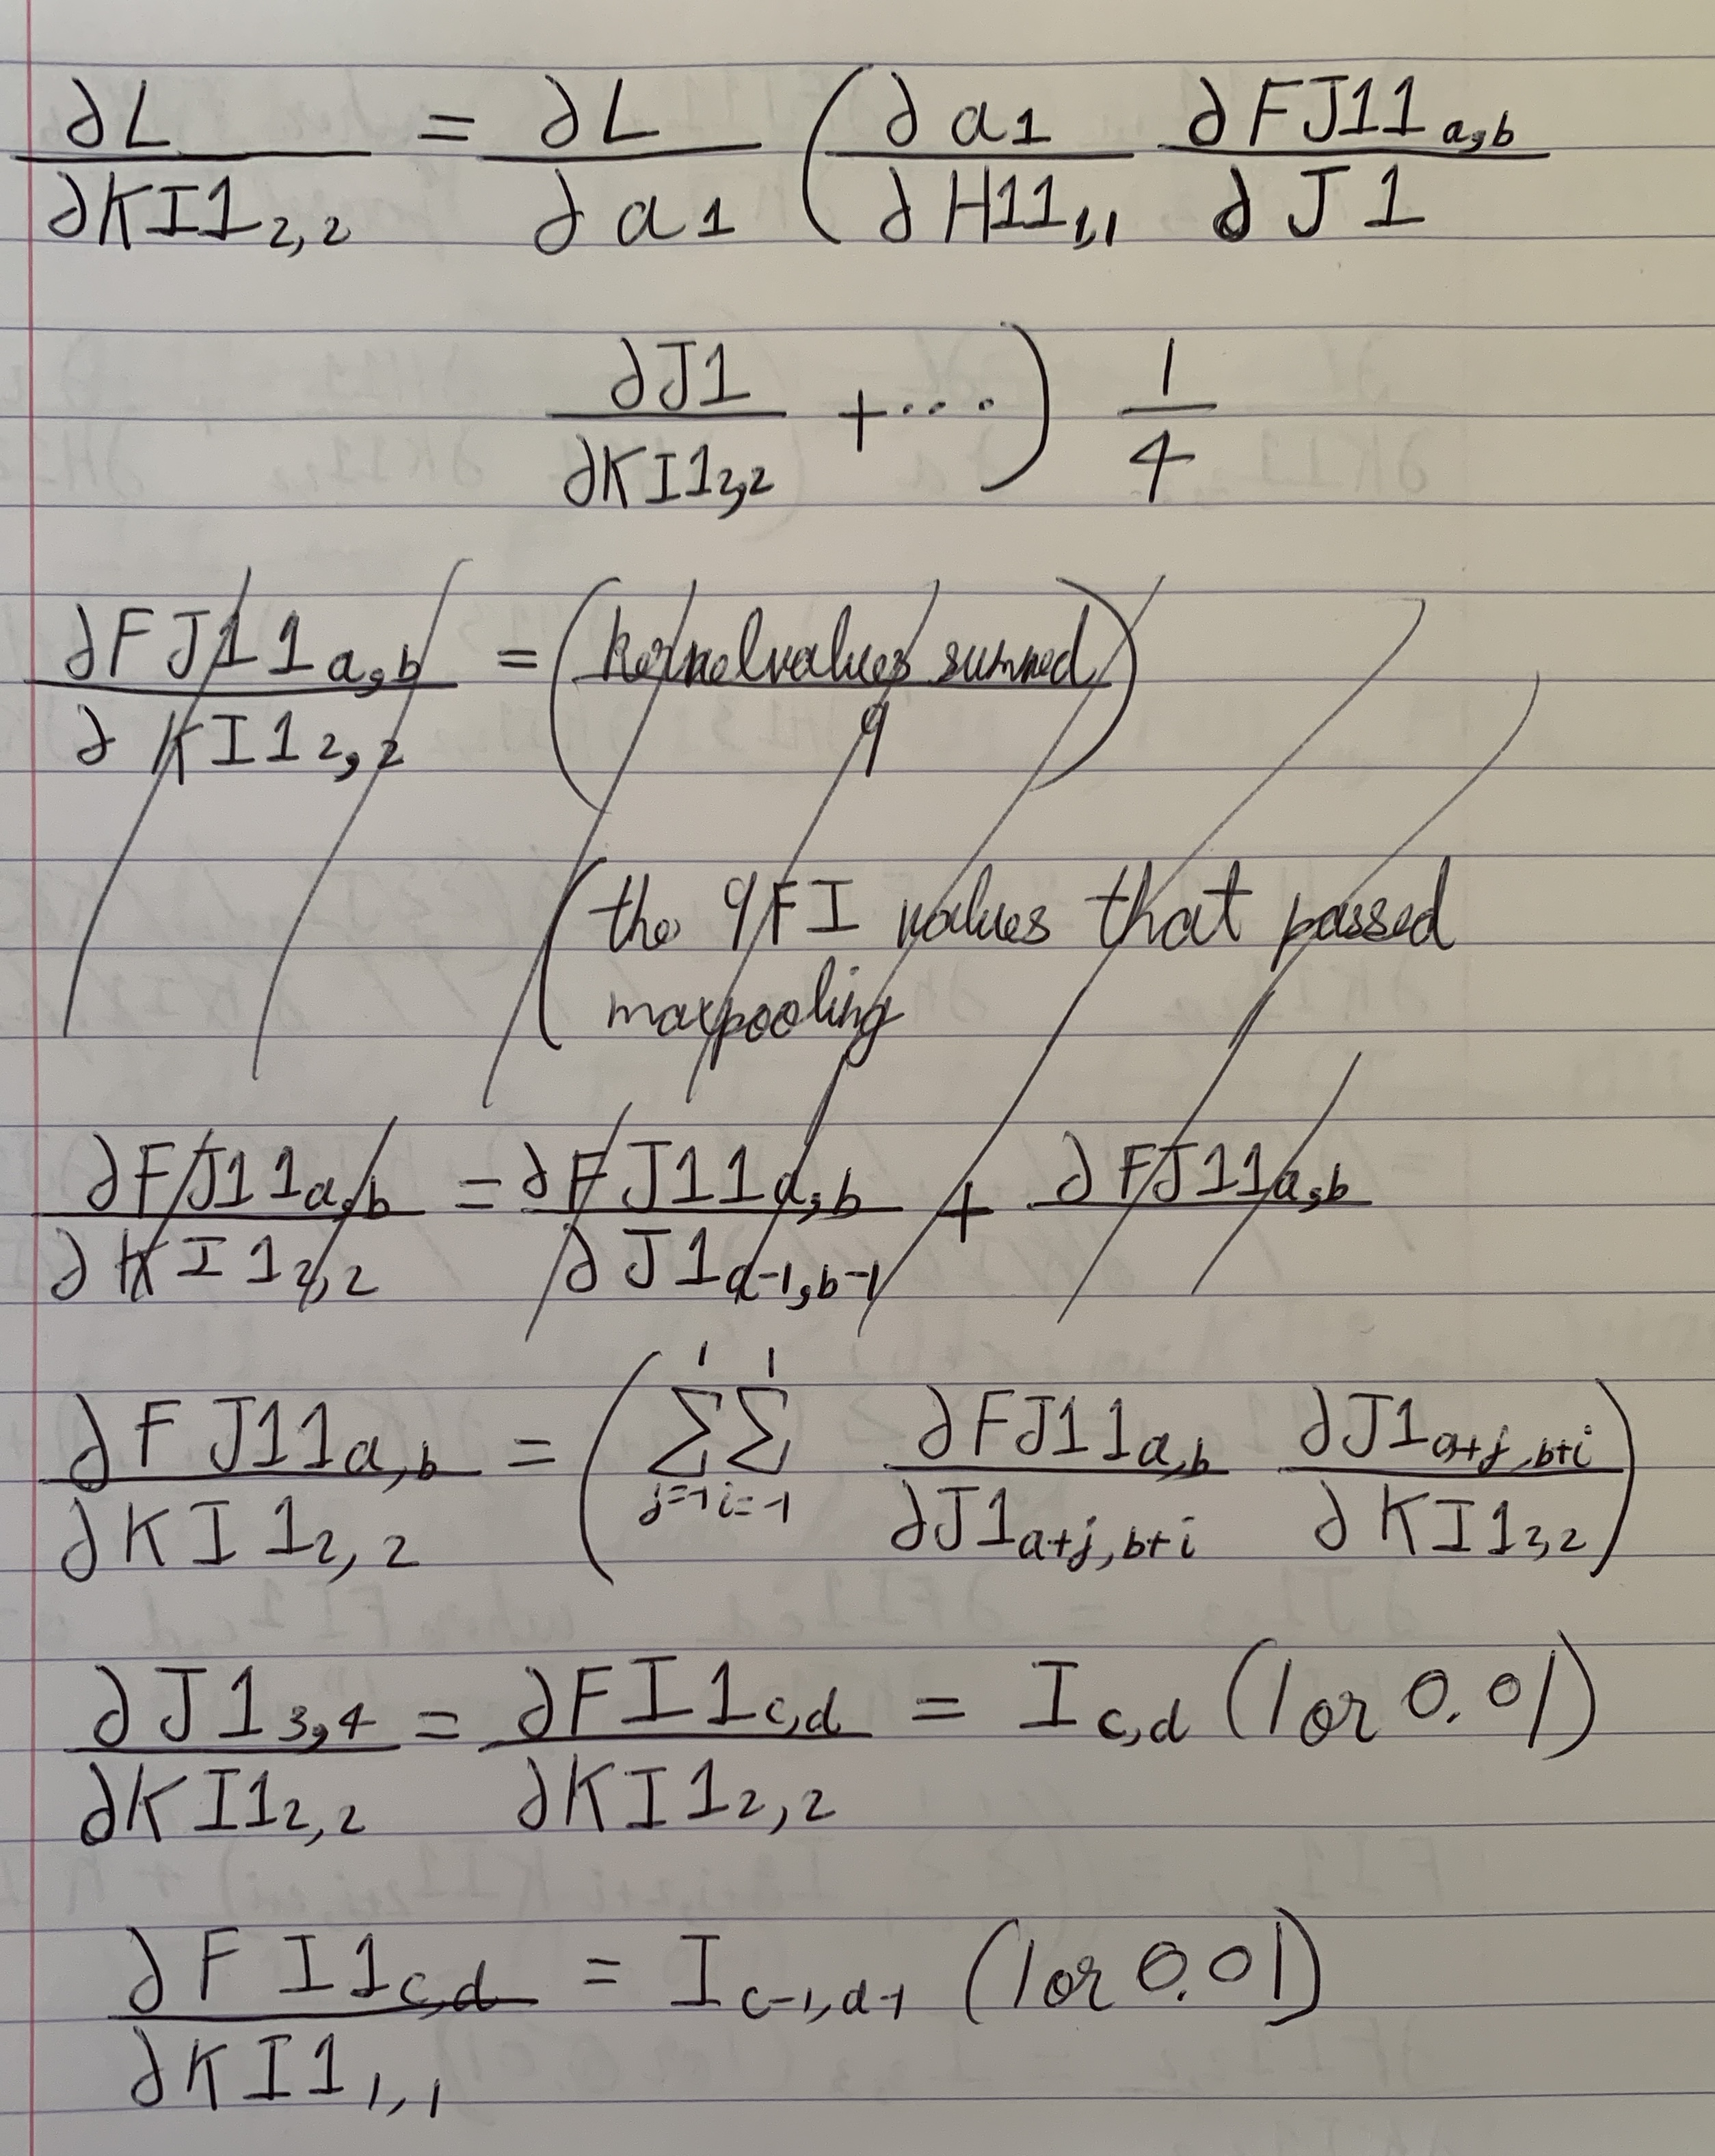 ∂L/∂KI1₂,₂ = ∂L/∂a1 (∂a1/∂H11₁,₁ ∂FJ11ₐ,b/∂J1
∂J1/∂KI1₂,₂ + ···) 1/4
∂FJ11ₐ,b/∂KI1₂,₂ = (kernel values summed/9)
(the 9 FI values that passed
maxpooling
∂FJ11ₐ,b/∂KI1₂,₂ = ∂FJ11ₐ,b/∂J1ₐ₋₁,b₋₁ + ∂FJ11ₐ,b
∂FJ11ₐ,b/∂KI1₂,₂ = (∑_{j=-1}^{1} ∑_{i=-1}^{1} ∂FJ11ₐ,b/∂J1_{a+j,b+i} ∂J1_{a+j,b+i}/∂KI1₂,₂)
∂J1₃,₄/∂KI1₂,₂ = ∂FI1_{c,d}/∂KI1₂,₂ = I_{c,d} (1 or 0.01)
∂FI1_{c,d}/∂KI1₁,₁ = I_{c-1,d-1} (1 or 0.01)